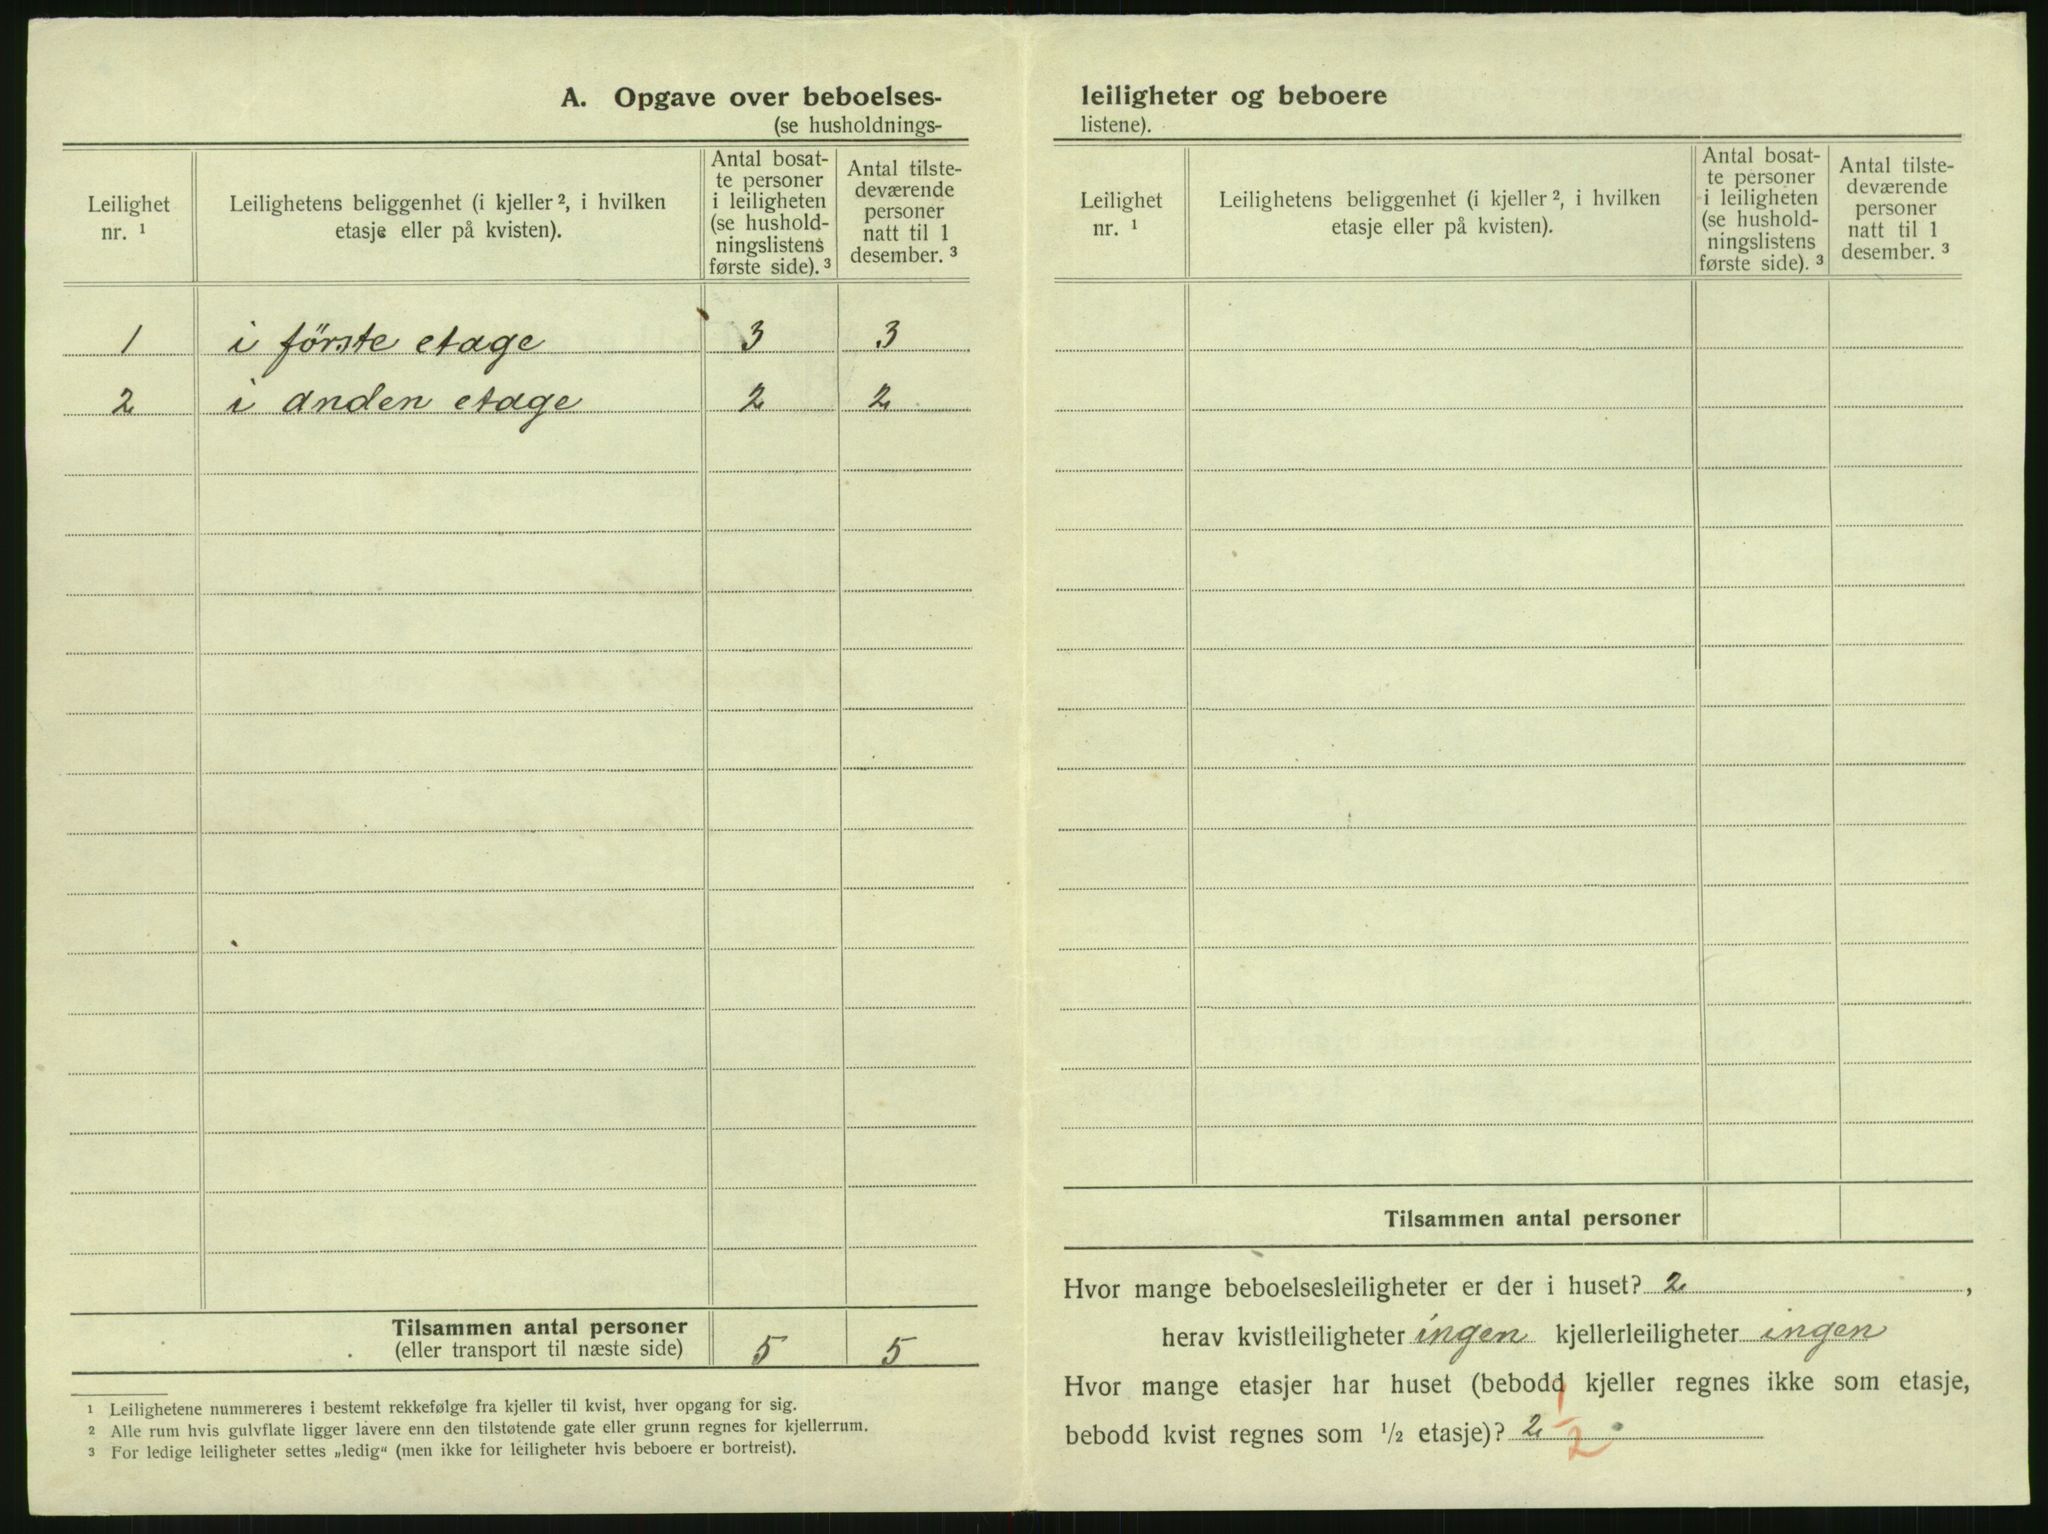 A. Opgave over beboelses-
(se husholdnings-
Leilighet nr. 1
Leilighetens beliggenhet (i kjeller 2, i hvilken etasje eller på kvisten).
Antal bosat-
te personer
i leiligheten
(se hushold-
ningslistens
første side). 3
Antal tilste-
deværende
personer
natt til 1
desember. 3
1 i förste etage 3 3
2 i anden etage 2 2
Tilsammen antal personer 5 5
(eller transport til næste side)
1 Leilighetene nummereres i bestemt rekkefølge fra kjeller til kvist, hver opgang for sig.
2 Alle rum hvis gulvflate ligger lavere enn den tilstøtende gate eller grunn regnes for kjellerrum.
3 For ledige leiligheter settes „ledig“ (men ikke for leiligheter hvis beboere er bortreist).
leiligheter og beboere
listene).
Leilighet nr. 1
Leilighetens beliggenhet (i kjeller 2, i hvilken etasje eller på kvisten).
Antal bosat-
te personer
i leiligheten
(se hushold-
ningslistens
første side). 3
Antal tilste-
deværende
personer
natt til 1
desember. 3
Tilsammen antal personer
Hvor mange beboelsesleiligheter er der i huset? 2,
herav kvistleiligheter ingen kjellerleiligheter ingen
Hvor mange etasjer har huset (bebodd kjeller regnes ikke som etasje,
bebodd kvist regnes som 1/2 etasje)? 2 1/2